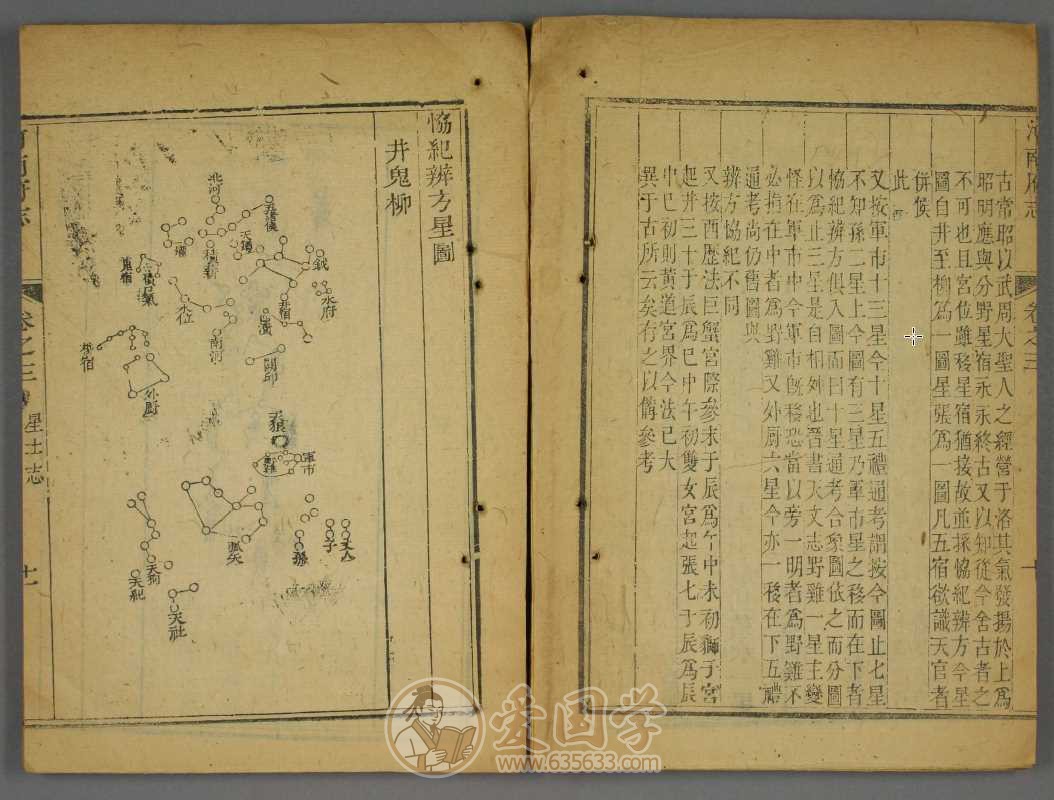 河南府志
卷之三
古常昭以武周大聖人之經營于洛其氣發揚於上為
昭明應與分野星宿永永終古又以知從今舍古者之
不可也且宮位雖移星宿猶接故並採恊紀辨方今星
圖自井至柳為一圖星張為一圖凡五宿欲識天官者
併候
此
又按軍市十三星今十星五禮通考謂按今圖止七星
不知孫二星上今圖有三星乃軍市星之移而在下者
恊紀辨方俱入圖而曰十星通考合象圖依之而分圖
以為止三星是自相舛也晉書天文志野雞一星主變
怪在軍市中今軍市旣移恐當以旁一明者為野雞不
必指在中者為野雞又外厨六星今亦一移在下五禮
通考尚仍舊圖與
辨方恊紀不同
又按西歷法巨蟹宮際參末于辰為午中未初獅子宮
起井三十于辰為巳中午初雙女宮起張七于辰為辰
中巳初則黃道宮界今法已大
異于古所云矣存之以備參考
恊紀辨方星圖
井鬼柳
北河
五諸侯
天鐏
積薪
爟
鬼宿
積尸氣
水位
鉞
水府
井宿
四瀆
南河
闕印
柳宿
外厨
天狼
軍市
野雞
弧矢
孫
子
丈人
天狗
天紀
天社
卷之三
星土志
十一
愛国学
www.635633.com